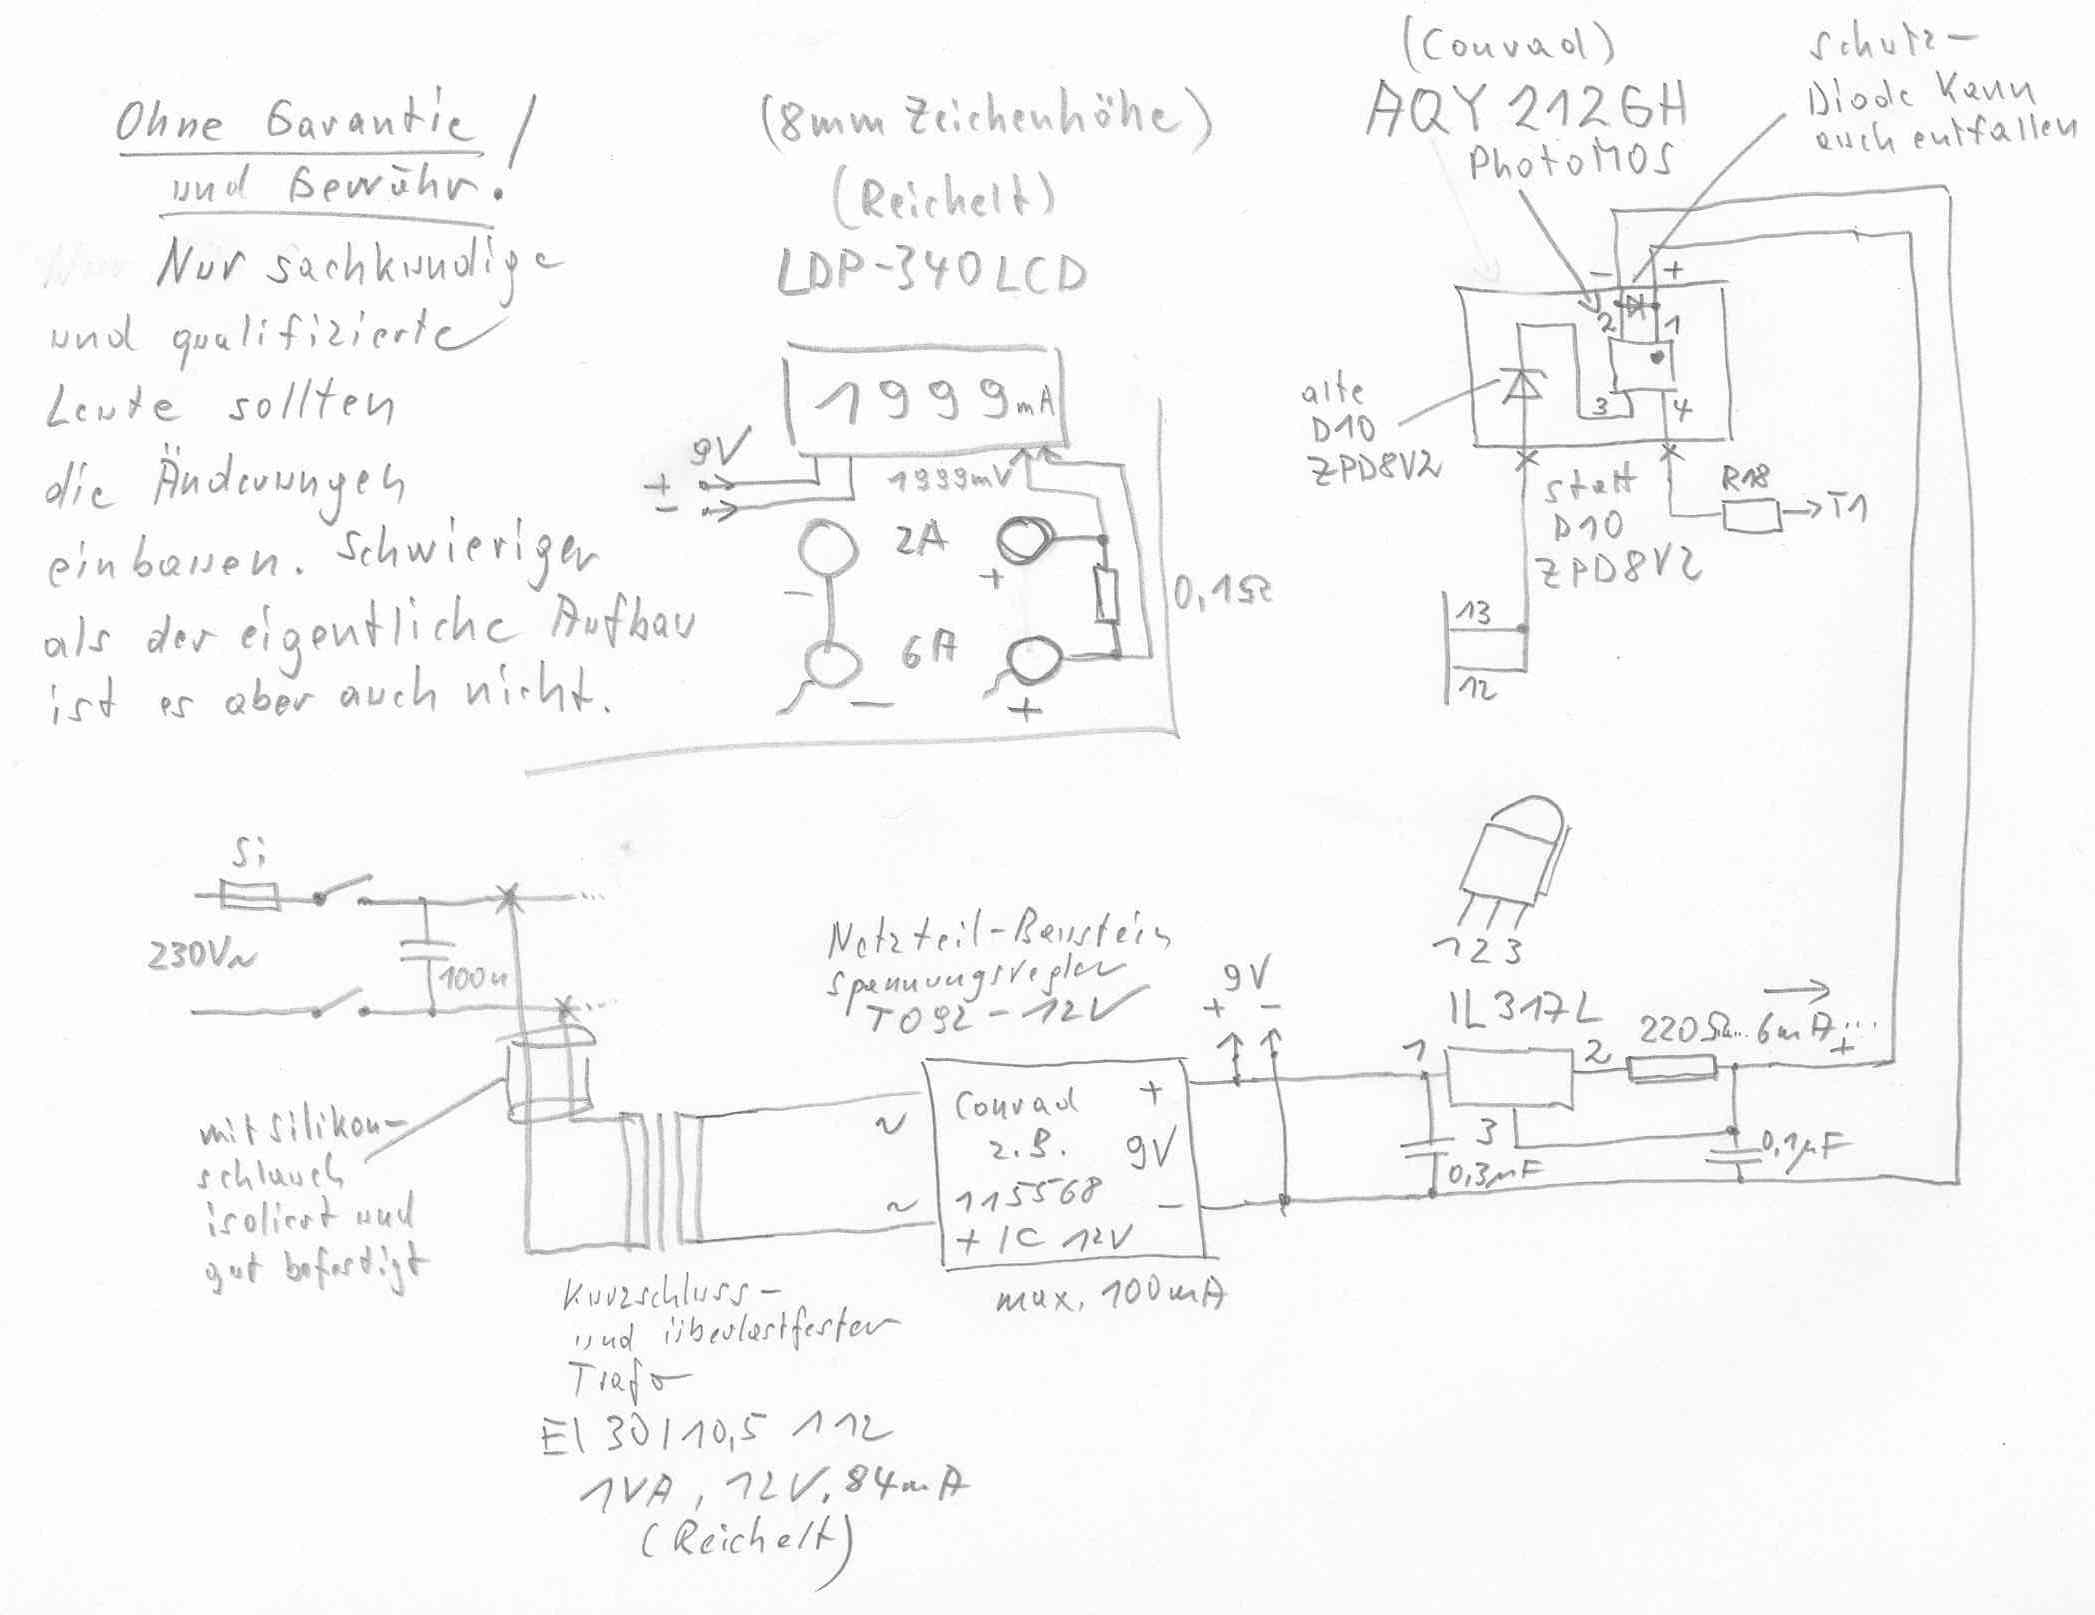 Ohne Garantie
und Gewähr!
Nur sachkundige
und qualifizierte
Leute sollten
die Änderungen
einbauen. Schwieriger
als der eigentliche Aufbau
ist es aber auch nicht.
(8mm Zeichenhöhe)
(Reichelt)
LDP-340LCD
1999mA
9V
+
-
1999mV
2A
-
+
0,1Ω
6A
-
+
(Conrad)
AQY 212GH
PhotoMOS
Schutz-
Diode kann
auch entfallen
- +
2 1
3 4
alte
D10
ZPD8V2
statt
D10
ZPD8V2
R18
T1
13
12
Si
230V~
100n
mit Silikon-
schlauch
isoliert und
gut befestigt
Kurzschluss-
und überlastfester
Trafo
EI 30/10,5 112
1VA, 12V, 84mA
(Reichelt)
Netzteil-Baustein
Spannungsregler
TO92-12V
~
~
Conrad +
z.B. 9V
115568
+ IC 12V -
max. 100mA
9V
+ -
1 2 3
IL317L
1 2
3
220Ω... 6mA...
+
0,3µF
0,1µF